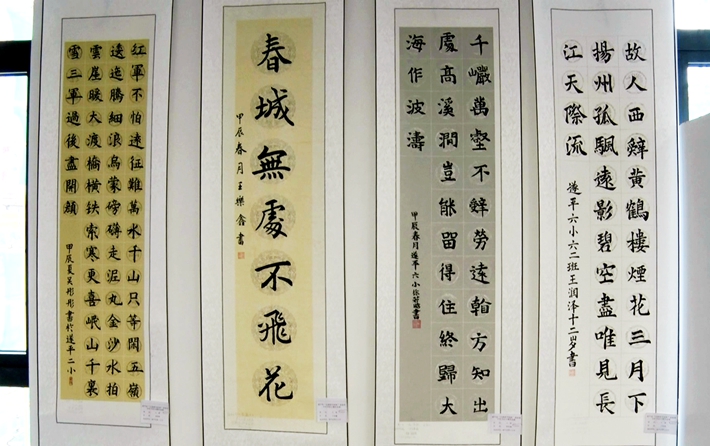 故人西辤黄鶴樓煙花三月下
揚州孤颿遠影碧空盡唯見長
江天際流
遂平六小六二班王润泽十二岁書
千巗萬壑不辤勞遠看方知出
處高溪澗豈能留得住終歸大
海作波濤
甲辰春月遂平六小徐書
春城無處不飛花
甲辰春月王樂鑫書
紅軍不怕遠征難萬水千山只等閒五嶺
逶迤騰細浪烏蒙磅礴走泥丸金沙水拍
雲崖暖大渡橋橫鉄索寒更喜岷山千裏
雪三軍過後盡開顔
甲辰夏吴彤彤書於遂平二小